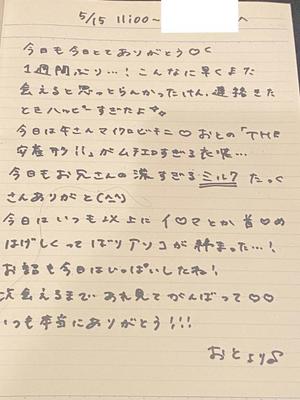 5/15 11:00〜 へ
今日も今日とてありがとう♡
1週間ぶり…!こんなに早くまた
会えると思っとらんかったけん、連絡きた
ときハッピーすぎたよ
今日は牛さんマイクロビキニ♡おとの「THE
安産型!!」がムチエロすぎる衣装…
今日もお兄さんの濃すぎるミルクたっく
さんありがと(^^)
今日はいつも以上にイ♡マとか首♡め
はげしくってばりアソコが締まった…!
お話も今日はいっぱいしたね!
次会えるまであれ見てがんばって♡♡
いつも本当にありがとう!!!
おとより